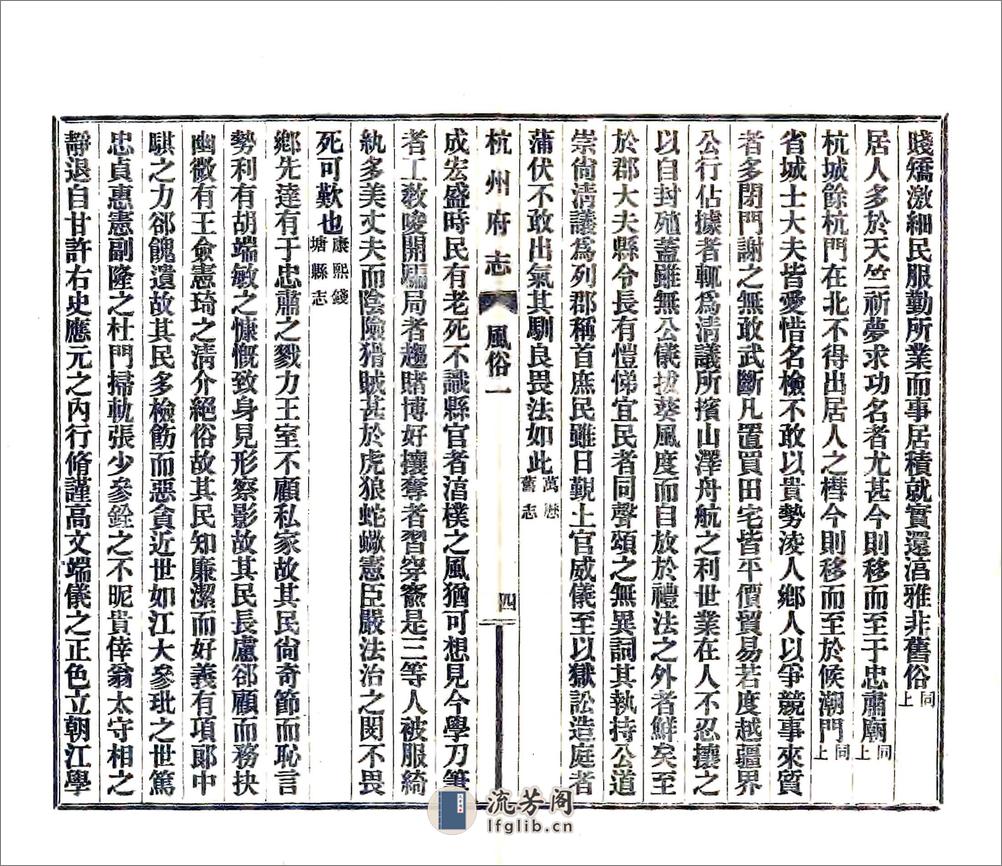 賤矯激細民服勤所業而事居積就實還湻雅非舊俗同上
居人多於天竺祈夢求功名者尤甚今則移而至于忠肅廟同上
杭城餘杭門在北不得出居人之櫘今則移而至於候潮門同上
省城士大夫皆愛惜名檢不敢以貴勢淩人鄉人以爭競事來質
者多閉門謝之無敢武斷凡置買田宅皆平價貿易若度越疆界
公行佔據者輒爲淸議所擯山澤舟航之利世業在人不忍攘之
以自封殖蓋雖無公儀拔葵風度而自放於禮法之外者鮮矣至
於郡大夫縣令長有愷悌宜民者同聲頌之無異詞其執持公道
崇尙淸議爲列郡稱首庶民雖日覲上官威儀至以獄訟造庭者
蒲伏不敢出氣其馴良畏法如此萬厯舊志
杭州府志 風俗一 四
成宏盛時民有老死不識縣官者湻樸之風猶可想見今學刀筆
者工教唆開騙局者趨賭博好攘奪者習穿窬是三等人被服綺
紈多美丈夫而陰險猾賊甚於虎狼蛇蠍憲臣嚴法治之閔不畏
死可歎也康熙錢塘縣志
鄉先達有于忠肅之戮力王室不顧私家故其民尙奇節而恥言
勢利有胡端敏之慷慨致身見形察影故其民長慮郤顧而務抉
幽微有王僉憲琦之淸介絕俗故其民知廉潔而好義有項郎中
騏之力郤餽遺故其民多檢飭而惡貪近世如江大參玭之世篤
忠貞惠憲副隆之杜門掃軌張少參銓之不昵貴倖翁太守相之
靜退自甘許右史應元之內行脩謹高文端儀之正色立朝江學
流芳阁
lfglib.cn